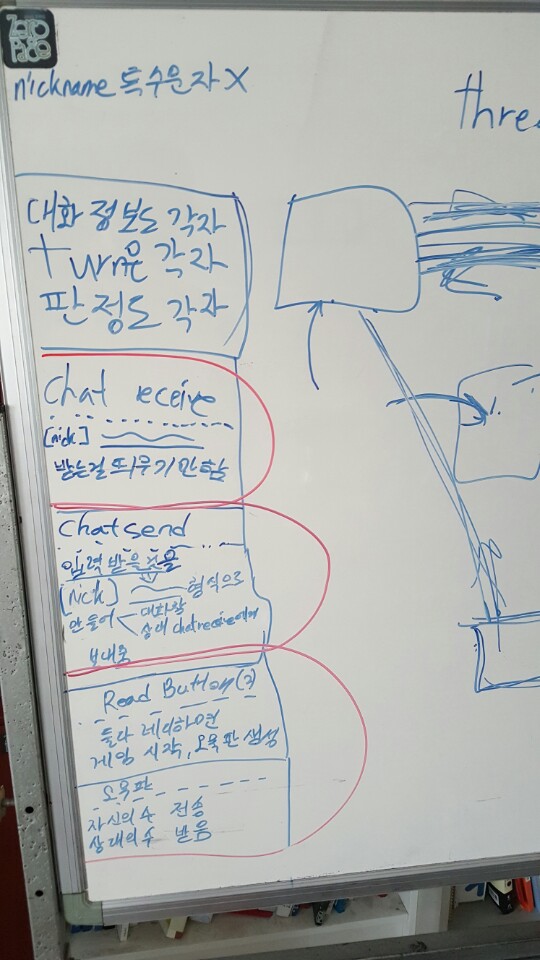 Zero
Page
nickname 특수문자 X
thre
대화 정보도 각자
turn은 각자
판정도 각자
Chat receive
[nick]
받는걸 띄우기만함
Chat send
입력 받은 것을
[nick] 형식으로
만들어 대화창
상대 chat receive에게
보내줌
Read Button(?)
둘다 레디하면
게임 시작, 오목판 생성
오목판
자신의 수 전송
상대의 수 받음